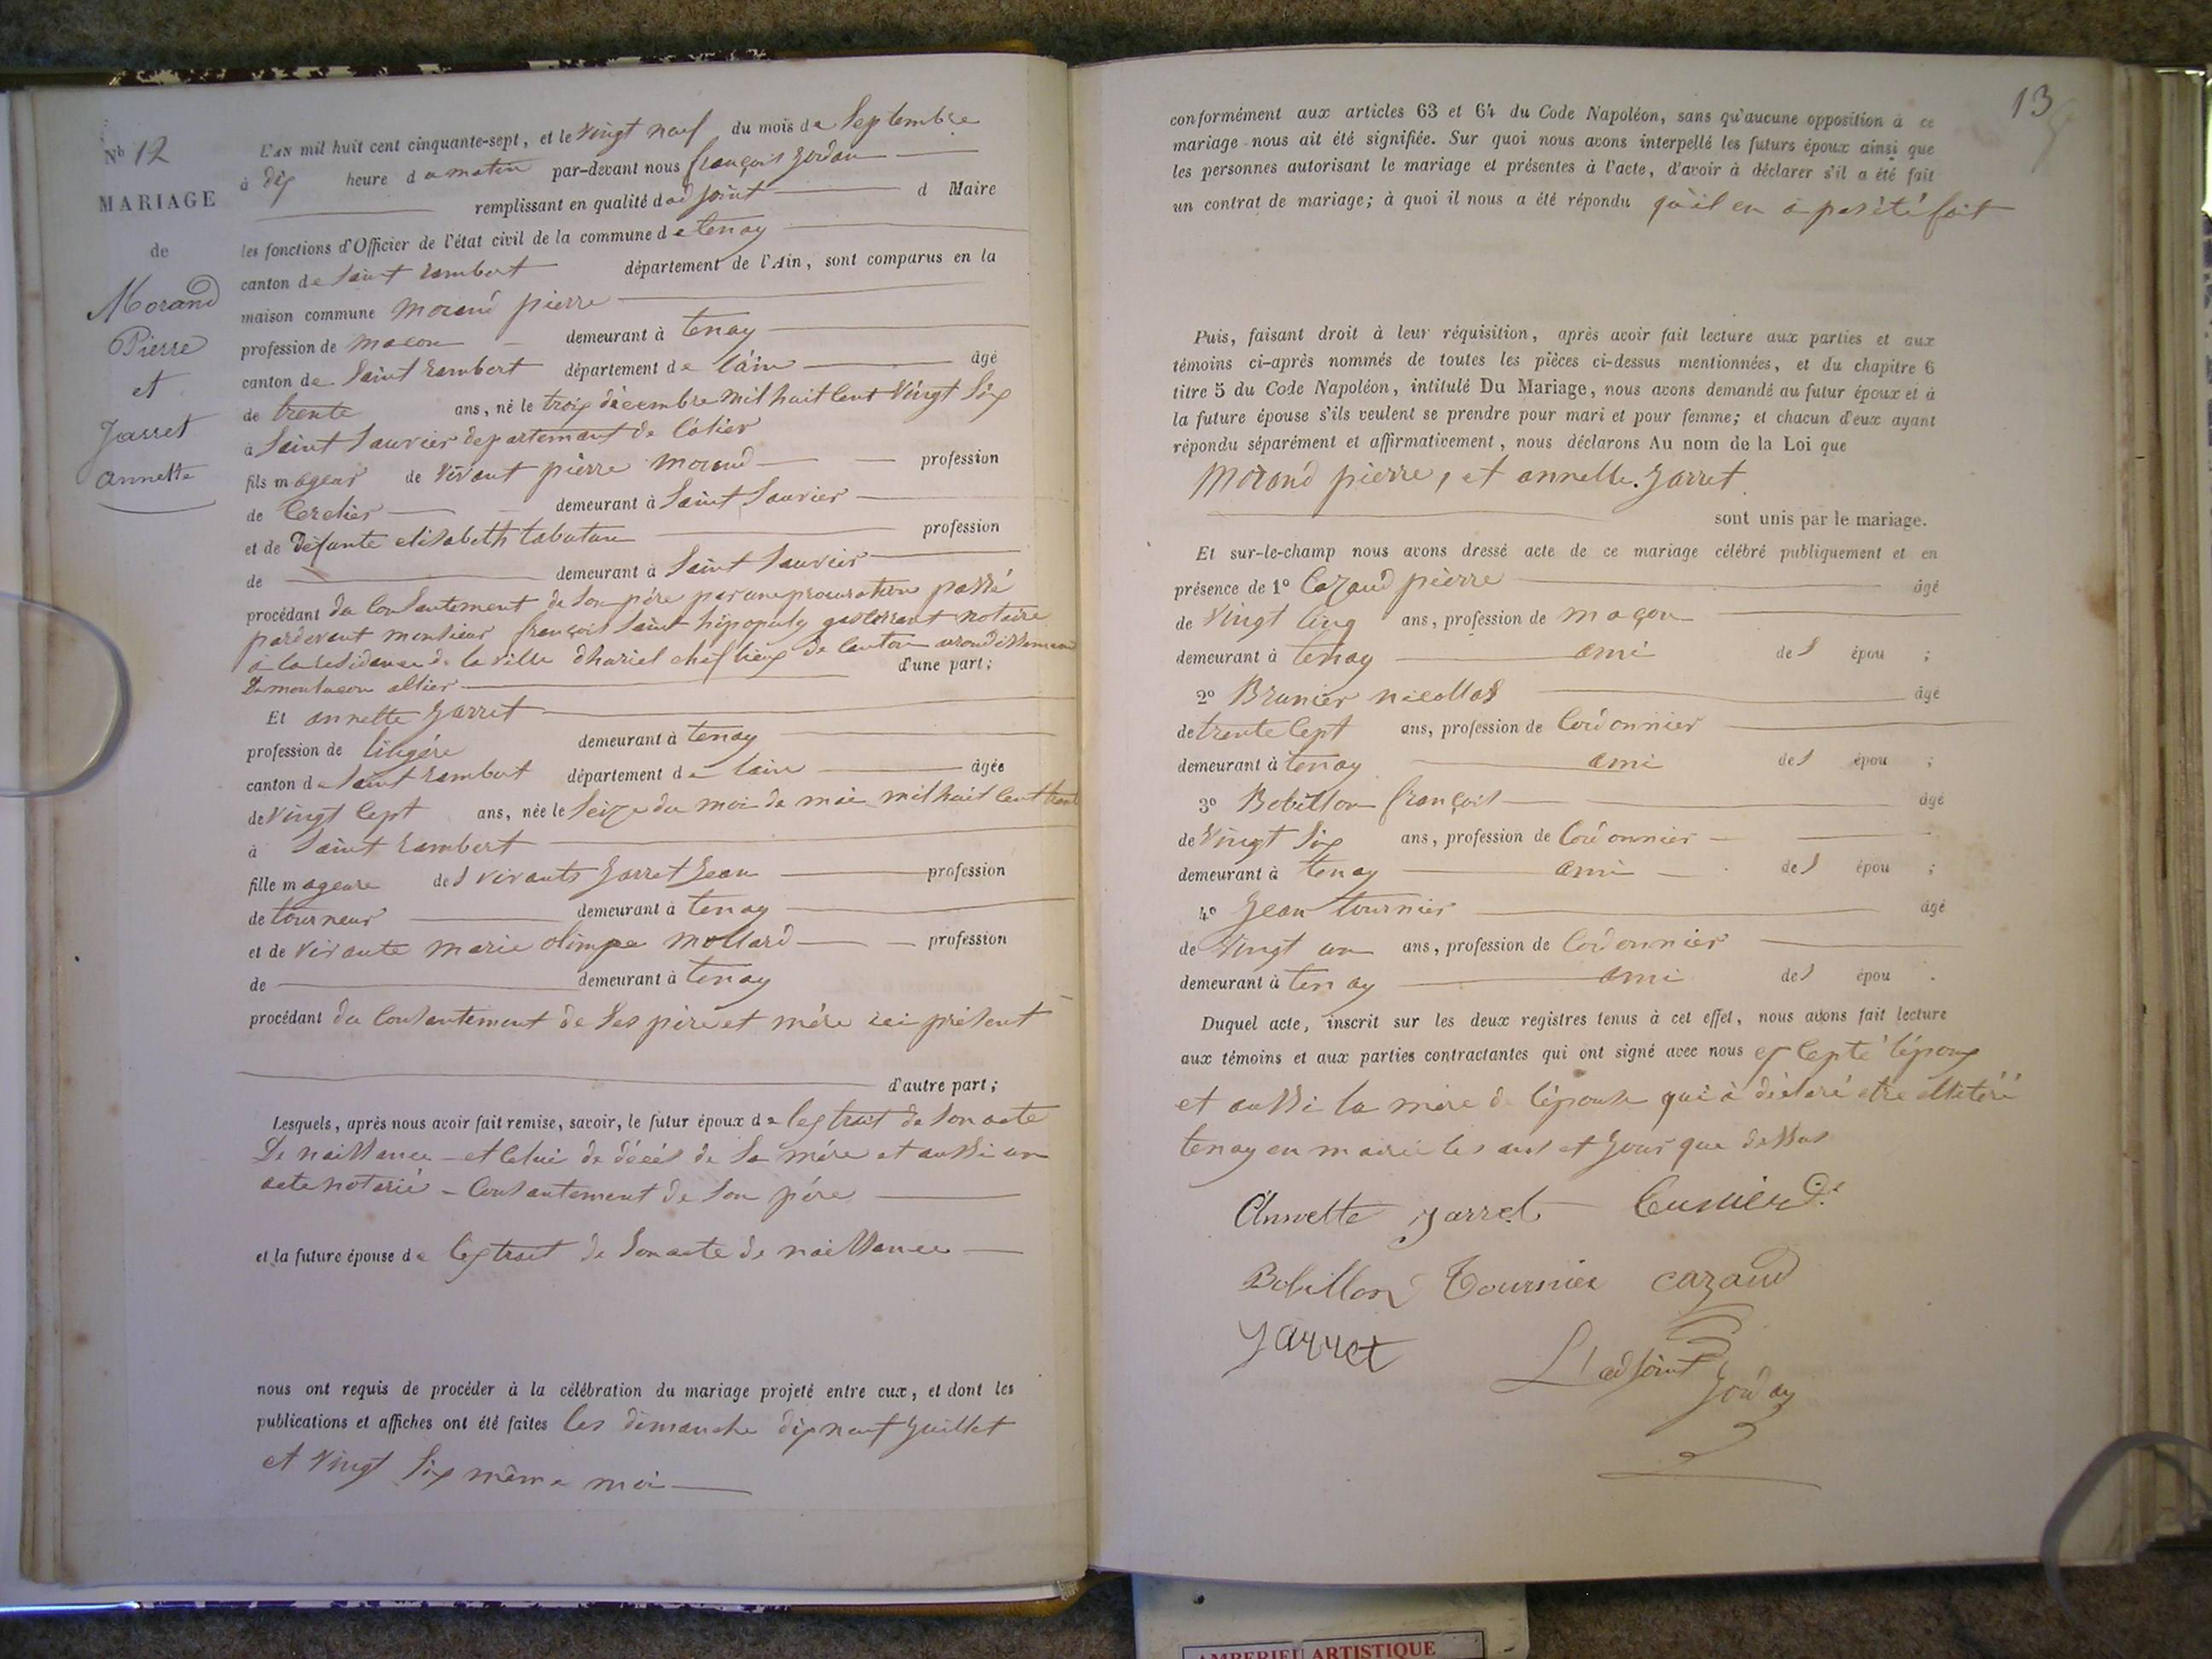 Nº 12
MARIAGE
de
Morand
Pierre
et
Jarret
annette
L'AN mil huit cent cinquante-sept, et le vingt neuf du mois de Septembre
à dix heure du matin par-devant nous françois Jordan
remplissant en qualité dadjoint d Maire
les fonctions d'Officier de l'état civil de la commune de tenay
canton de Saint rambert département de l'Ain, sont comparus en la
maison commune morand pierre
profession de macon demeurant à tenay
canton de Saint rambert département de l'áin âgé
de trente ans, né le trois décembre mil huit Cent Vingt Six
à Saint Sauvier departement de l'alier
fils mageur de vivant pierre morand profession
de Cerclier demeurant à Saint Sauvier
et de défunte elisabeth tabutau profession
de demeurant à Saint Sauvier
procédant du Consantement de Son pére par une procuration passé
pardevant monsieur françois Saint hipopuly notaire
à la residance de la ville dhuriel chef lieux de Canton arondissement
d'une part;
De montluçon allier
Et annette Jarret
profession de lingére demeurant à tenay
canton de Saint rambert département de lain âgée
de Vingt Sept ans, née le Seize du moi de mai mil huit Cent trente
à Saint rambert
fille mageure des vivants Jarret Jean profession
de tourneur demeurant à tenay
et de vivante marie olimpe mollard profession
de demeurant à tenay
procédant du Consantement de Ses pére et mére ici présent
d'autre part;
Lesquels, après nous avoir fait remise, savoir, le futur époux de lextrait de Son acte
De naissance et Celui de décés de Sa mére et aussi un
acte notarié Consantement de Son pére
et la future épouse de lextrait de Son acte de naissance
nous ont requis de procéder à la célébration du mariage projeté entre eux, et dont les
publications et affiches ont été faites les dimanche dix neuf Juillet
et Vingt Six même moi
13
conformément aux articles 63 et 64 du Code Napoléon, sans qu'aucune opposition à ce
mariage nous ait été signifiée. Sur quoi nous avons interpellé les futurs époux ainsi que
les personnes autorisant le mariage et présentes à l'acte, d'avoir à déclarer s'il a été fait
un contrat de mariage; à quoi il nous a été répondu qu'il en à pas été fait
Puis, faisant droit à leur réquisition, après avoir fait lecture aux parties et aux
témoins ci-après nommés de toutes les pièces ci-dessus mentionnées, et du chapitre 6
titre 5 du Code Napoléon, intitulé Du Mariage, nous avons demandé au futur époux et à
la future épouse s'ils veulent se prendre pour mari et pour femme; et chacun d'eux ayant
répondu séparément et affirmativement, nous déclarons Au nom de la Loi que
Morand pierre, et annette Jarret
sont unis par le mariage.
Et sur-le-champ nous avons dressé acte de ce mariage célébré publiquement et en
présence de 1º Cazaud pièrre âgé
de Vingt Cinq ans, profession de maçon
demeurant à tenay ami des épou ;
2º Brunier nicollas âgé
de trente Sept ans, profession de Cordonnier
demeurant à tenay ami des épou ;
3º Bobillon françois âgé
de Vingt Six ans, profession de Cordonnier
demeurant à tenay ami des épou ;
4º Jean tournier âgé
de Vingt un ans, profession de Cordonnier
demeurant à tenay ami des épou .
Duquel acte, inscrit sur les deux registres tenus à cet effet, nous avons fait lecture
aux témoins et aux parties contractantes qui ont signé avec nous excepté l'époux
et aussi la mére de l'épouse qui à déclaré etre illetéré
tenay en mairie les ans et Jour que dessus
Annette Jarret
Bobillon Tournier cazaud
Jarret
L'adjoint
Jordan
AMBERIEU ARTISTIQUE